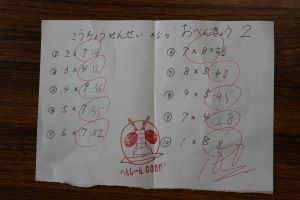 こうちょうせんせいからの おべんきょう 2
① 2 × 7=14
② 3 × 4=12
③ 4 × 9=36
④ 5 × 7=35
⑤ 6 × 7=42
⑥ 7 × 8=56
⑦ 8 × 5=40
⑧ 9 × 5=45
⑨ 7 × 4=28
⑩ 1 × 8=8
へんしーん GOOD!